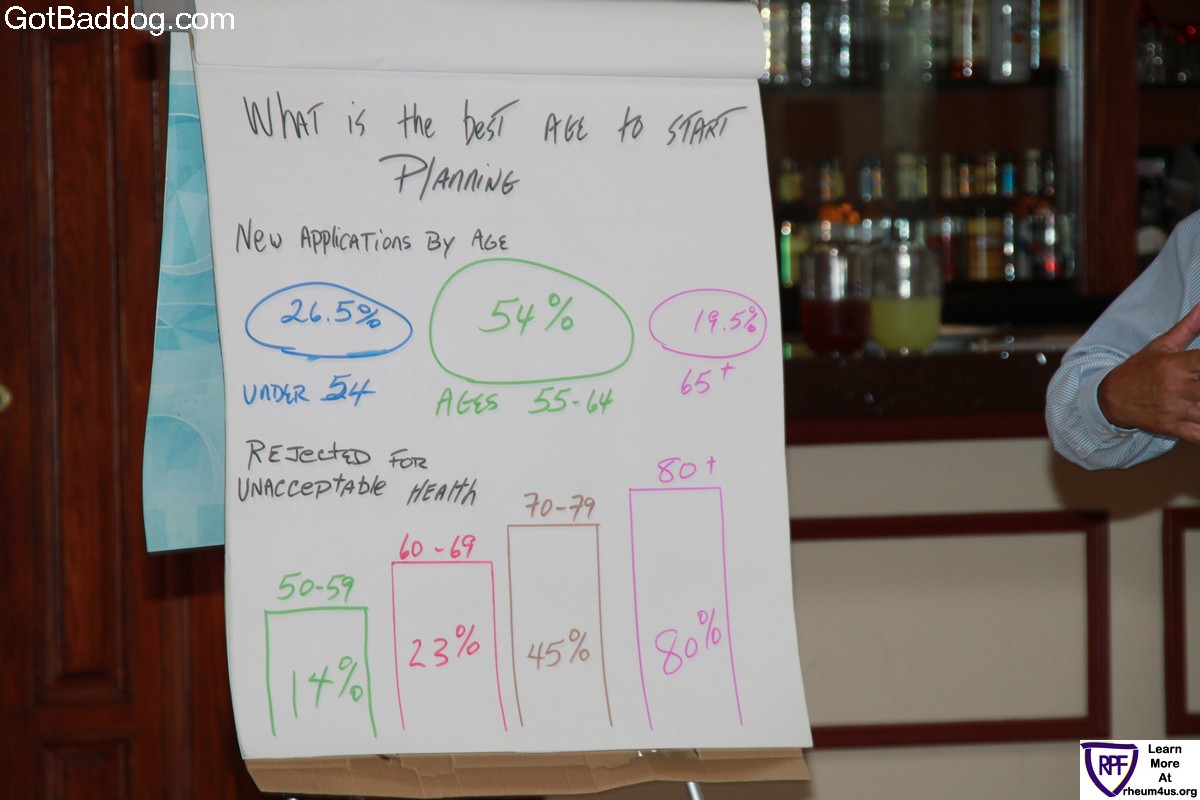 GotBaddog.com
WHAT is the best AGE to START
PlANNING
NEW APPlICATIONS BY AGE
26.5% 54% 19.5%
UNDER 54 AGES 55-64 65+
REJECTED FOR
UNACCEPTABLE HEALTH
50-59 60-69 70-79 80+
14% 23% 45% 80%
RPF
Learn
More
At
rheum4us.org